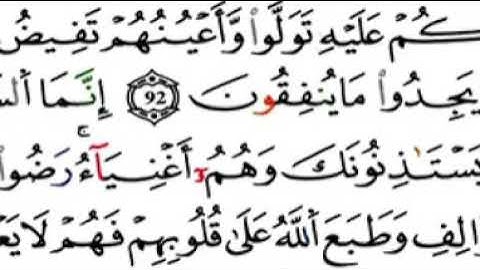 كُمْ عَلَيْهِ تَوَلَّوا۟ وَّأَعْيُنُهُمْ تَفِيضُ
يَجِدُوا۟ مَا يُنفِقُونَ 92 إِنَّمَا
يَسْتَـٔذِنُونَكَ وَهُمُۥٓ أَغْنِيَآءُ رَضُوا۟
وَطَبَعَ ٱللَّهُ عَلَىٰ قُلُوبِهِمْ فَهُمْ لَا